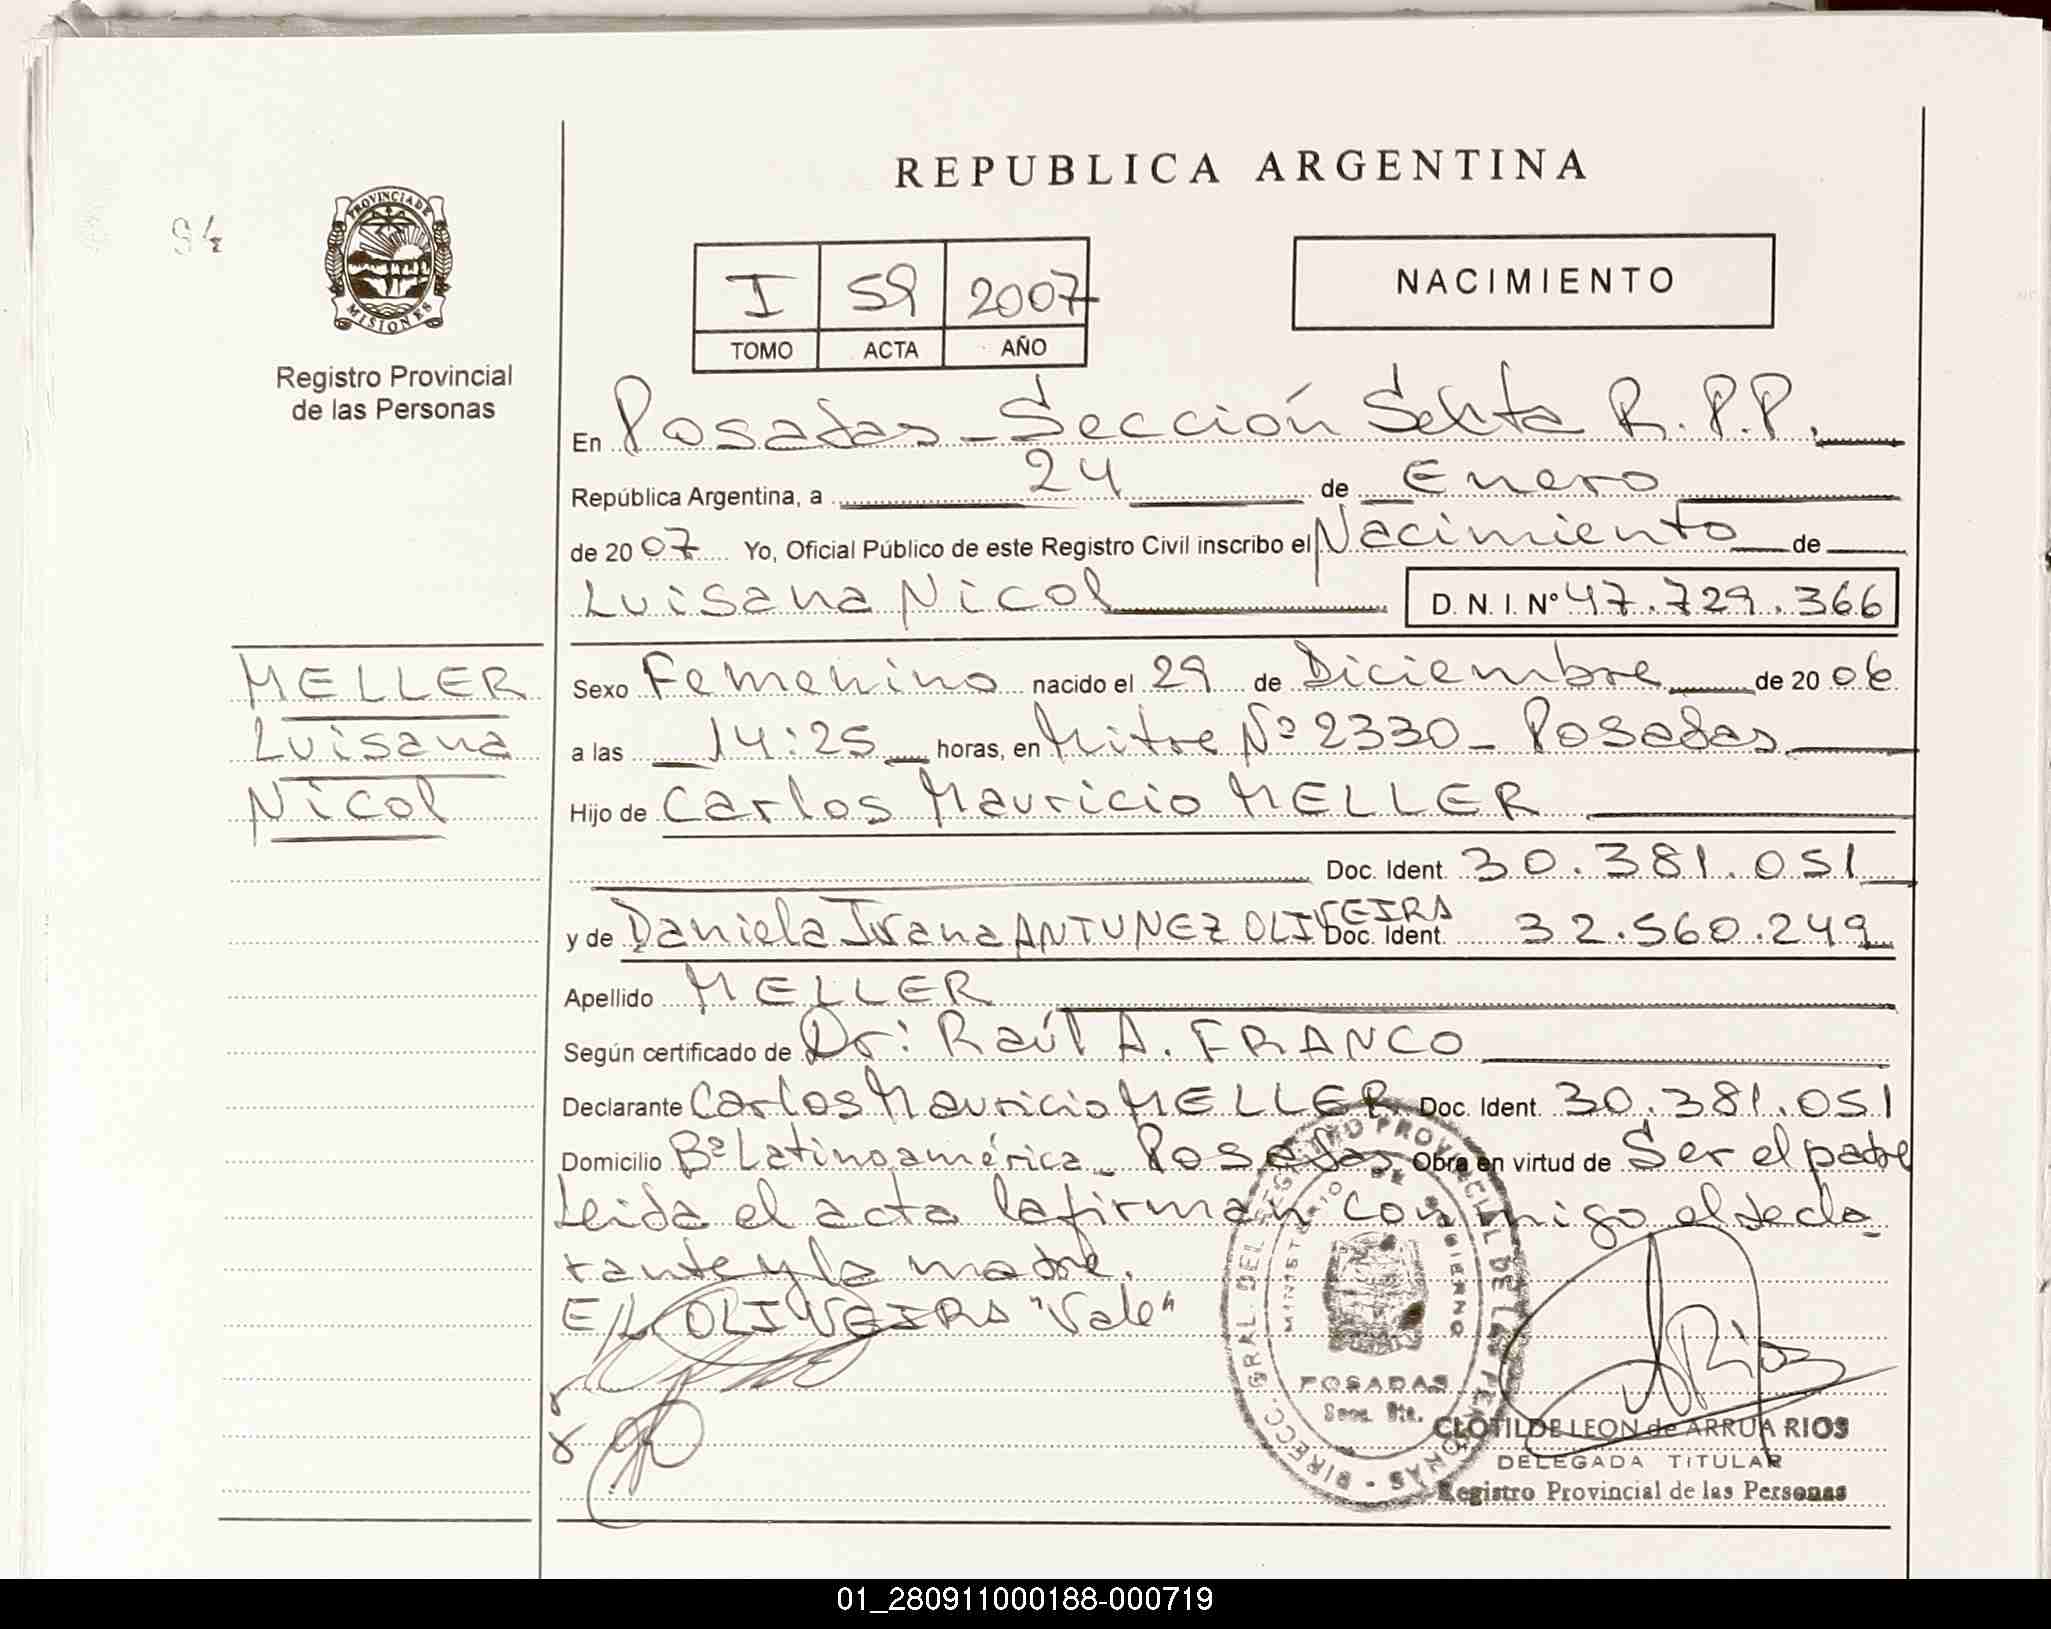 REPUBLICA ARGENTINA
PROVINCIA DE
MISIONES
Registro Provincial
de las Personas
I 59 2007
TOMO ACTA AÑO
NACIMIENTO
En Posadas - Sección Sexta R.P.P.
República Argentina, a 24 de Enero
de 2007 Yo, Oficial Público de este Registro Civil inscribo el Nacimiento de
Luisana Nicol D. N. I. Nº 47.729.366
MELLER
Luisana
Nicol
Sexo Femenino nacido el 29 de Diciembre de 2006
a las 14:25 horas, en Mitre Nº 2330 - Posadas
Hijo de Carlos Mauricio MELLER
Doc. Ident. 30.381.051
y de Daniela Ivana ANTUNEZ OLIVEIRA Doc. Ident. 32.560.249
Apellido MELLER
Según certificado de Dr: Raúl A. FRANCO
Declarante Carlos Mauricio MELLER Doc. Ident. 30.381.051
Domicilio Bº Latinoamérica - Posadas Obra en virtud de Ser el padre
Leida el acta la firman conmigo el decla
rante y la madre.
E/L OLIVEIRA "Vale"
DIRECC. GRAL. DEL REGISTRO PROVINCIAL DE LAS PERSONAS
MINISTERIO DE GOBIERNO
POSADAS
ARios
CLOTILDE LEON de ARRUA RIOS
DELEGADA TITULAR
Registro Provincial de las Personas
01_280911000188-000719